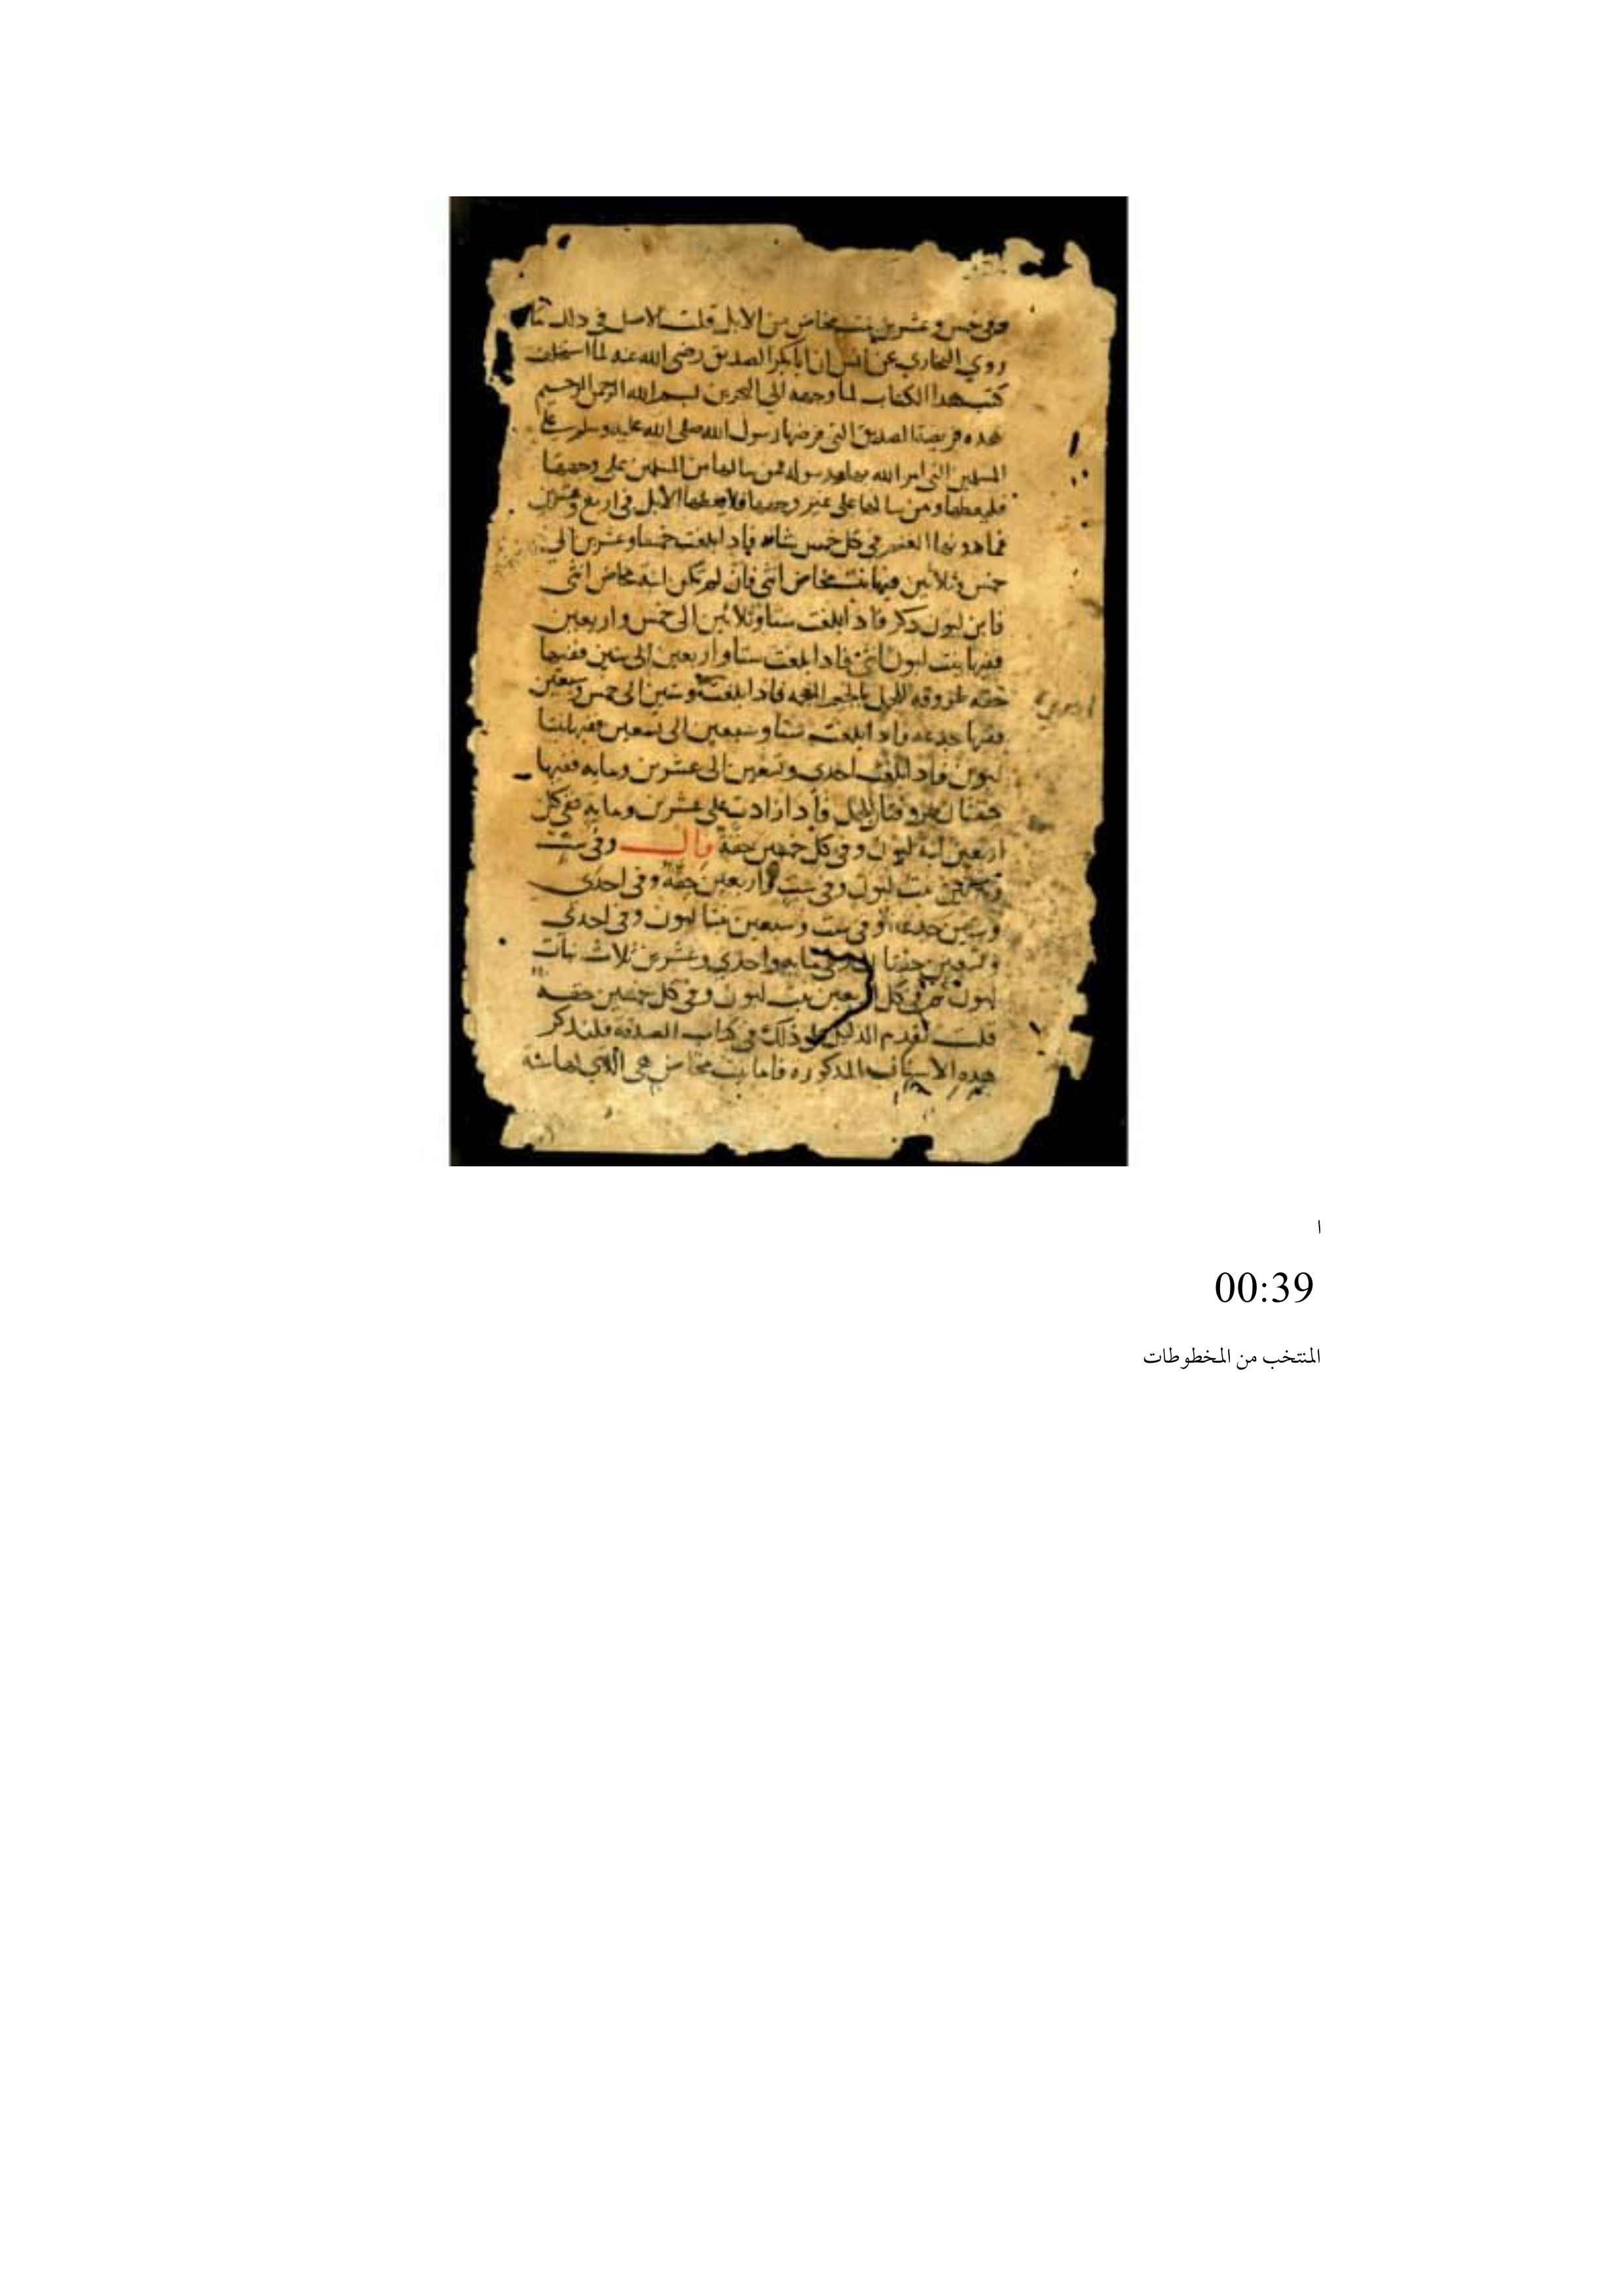 وفي خمس وعشرين بنت مخاض من الابل قلت الاصل في ذلك ما
روي البخاري عن انس ان ابا بكر الصديق رضي الله عنه لما استخلف
كتب هذا الكتاب لما وجهه الي البحرين بسم الله الرحمن الرحيم
هذه فريضة الصديق التي فرضها رسول الله صلى الله عليه وسلم على
المسلمين التي امر الله بها رسوله فمن سالها من المسلمين على وجهها
فليعطها ومن سالها على غير وجهها فلا يعطها الابل في اربع وعشرين
فما دونها الغنم في كل خمس شاه فاذا بلغت خمسا وعشرين الى
خمس وثلاثين فيها بنت مخاض انثى فان لم تكن ابنة مخاض انثى
فابن لبون ذكر فاذا بلغت ستا وثلاثين الى خمس واربعين
ففيها بنت لبون انثى فاذا بلغت ستا واربعين الى ستين ففيها
حقه طروقه الجمل بالجيم فاذا بلغت وستين الى خمس وسبعين
ففيها جذعه فاذا بلغت ستا وسبعين الى تسعين ففيها بنتا
لبون فاذا بلغت احدى وتسعين الى عشرين ومايه ففيها
حقتان طروقتا الجمل فاذا زادت على عشرين ومايه ففي كل
اربعين ابنة لبون وفي كل خمسين حقة قال وفي ست
وثلاثين بنت لبون وفي ست واربعين حقة وفي احدى
وستين جذعة وفي ست وسبعين بنتا لبون وفي احدى
وتسعين حقتا وفي مايه واحدى وعشرين ثلاث بنات
لبون ثم في كل اربعين بنت لبون وفي كل خمسين حقه
قلت تقدم الدليل على ذلك في كتاب الصدقه فلنذكر
هذه الاسنان المذكوره فاما بنت مخاض هي التي لها سنة
ا
00:39
المنتخب من المخطوطات